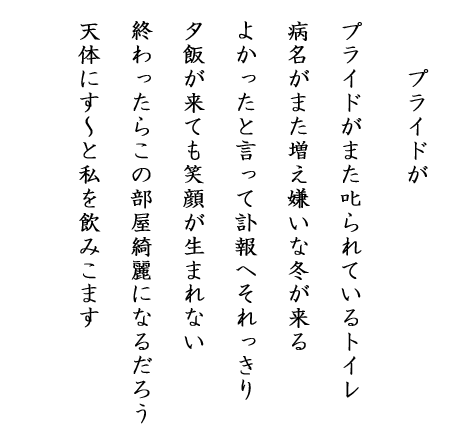 プライドが
プライドがまた叱られているトイレ
病名がまた増え嫌いな冬が来る
よかったと言って訃報へそれっきり
夕飯が来ても笑顔が生まれない
終わったらこの部屋綺麗になるだろう
天体にす〜と私を飲みこます